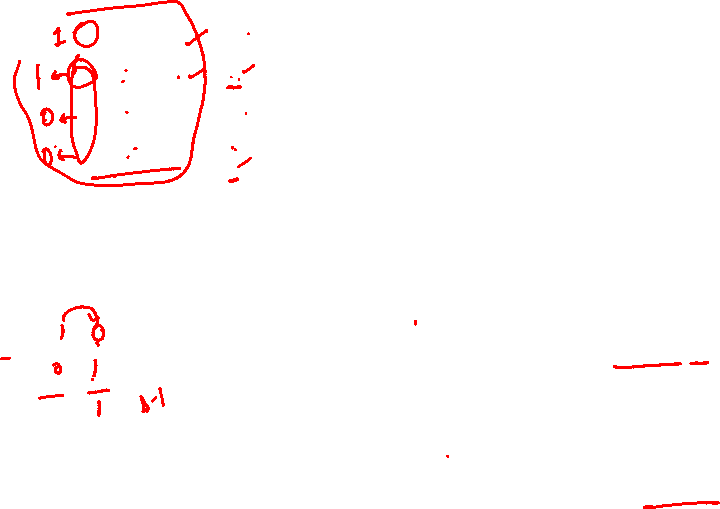 1 0
1
0
0
1 0
0 1
1
b-1